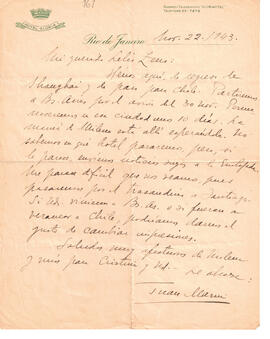 161
Rio de Janeiro, Nov. 22. 1943.
Mi querido Félix Leus:
Henos aquí, de regreso de
Shanghai y de paso para Chile. Partimos
a Bs. Aires por el avión del 30 nov. Perma-
neceremos en esa ciudad unos 10 días. La
mamá de Milena está allí esperándola. No
sabemos en qué hotel pararemos, pero, si
le parece, nuestras noticias
Me parece difícil que nos veamos, pues
pasaremos por el trasandino a Santiago.
Si Ud. viniera a Bs. As. o si fueran a
veranear a Chile, podríamos darnos el
gusto de cambiar impresiones.
Saludos muy afectuosos de Milena
y míos para Cristina y Ud. - Le abraza:
Juan Marín